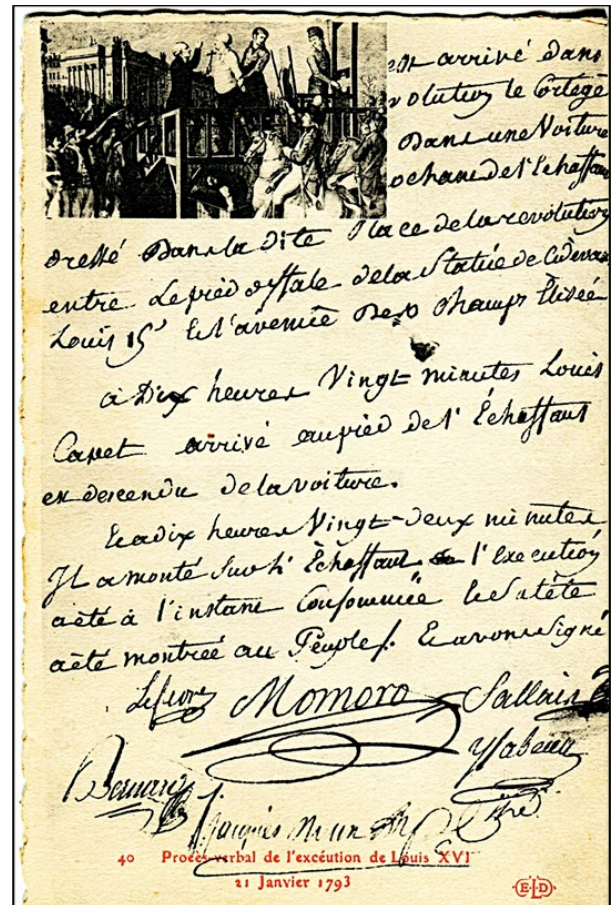 est arrivé dans
volution le Cortege
Dans une Voiture
ochant de l'Echaffaut
dressé Dans la Dite Place de la revolution
entre Le pied d'Estale de la Statüe de Cidevant
Louis 15 Et l'avenüe Des Champs Elisée
à Dix heures Vingt minutes Louis
Capet arrivé au pied de l'Échaffaut
est descendu de la voiture.
Et a dix heures Vingt-Deux minutes
Il a monté Sur l'Échaffaut l'Execution
a été à l'instant Consommée Et Sa tête
a été montrée au Peuple. Et avons Signé
Lefevre Momoro Sallais
Bernard Isabeau
Jacques
40 Procès-verbal de l'excéution de Louis XVI
21 Janvier 1793
E.L.D.